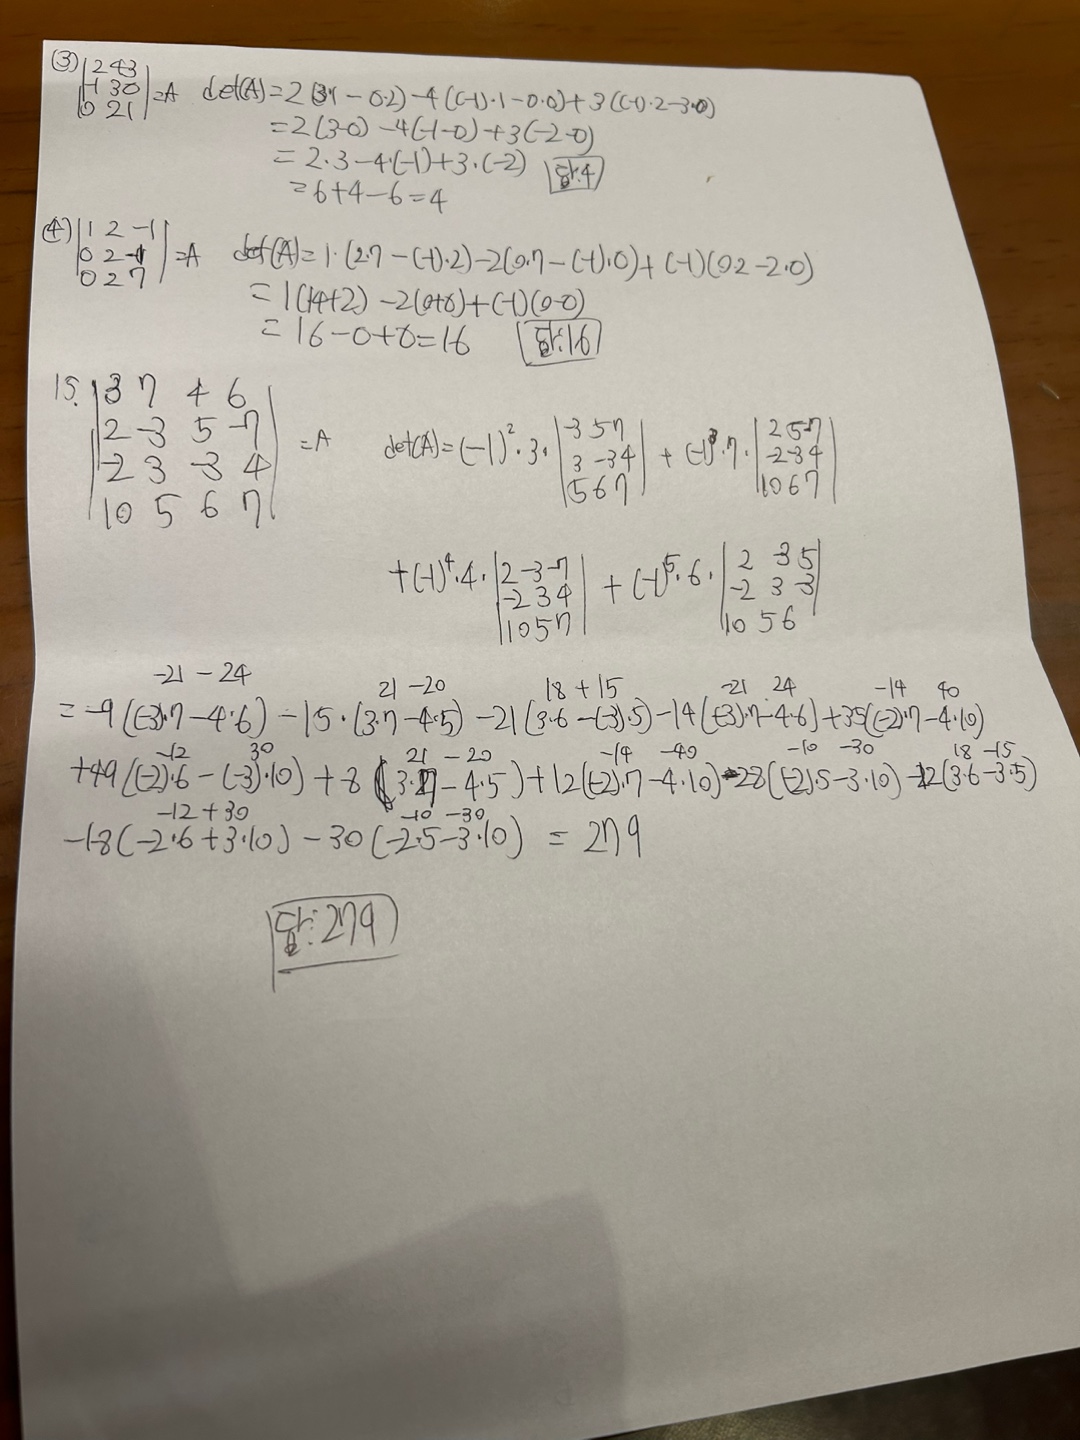 (3) |2 4 3|
|-1 3 0| =A det(A)=2(3·1-0·2)-4((-1)·1-0·0)+3((-1)·2-3·0)
|0 2 1|
=2(3-0)-4(-1-0)+3(-2-0)
=2·3-4·(-1)+3·(-2) 답:4
=6+4-6=4
(4) |1 2 -1|
|0 2 -1| =A det(A)=1·(2·7-(-1)·2)-2(0·7-(-1)·0)+(-1)(0·2-2·0)
|0 2 7|
=1(14+2)-2(0+0)+(-1)(0-0)
=16-0+0=16 답:16
15. |3 7 4 6|
|2 -3 5 -7|
|-2 3 -3 4| =A det(A)=(-1)²·3·|-3 5 7| + (-1)³·7·|2 5 -7|
|10 5 6 7| |3 -3 4| |-2 -3 4|
|5 6 7| |10 6 7|
+(-1)⁴·4·|2 -3 -7| + (-1)⁵·6·|2 3 5|
|-2 3 4| |-2 3 -3|
|10 5 7| |10 5 6|
-21 -24 21 -20 18 +15 -21 24 -14 40
=-9((-3)·7-4·6)-15·(3·7-4·5)-21(3·6-(-3)·5)-14((-3)·7-4·6)+35((-2)·7-4·10)
-12 30 21 -20 -14 -40 -10 -30 18 -15
+49((-2)·6-(-3)·10)+8(3·7-4·5)+12((-2)·7-4·10)-28((-2)·5-3·10)-12(3·6-3·5)
-12+30 -10 -30
-18(-2·6+3·10)-30(-2·5-3·10)=279
답:279